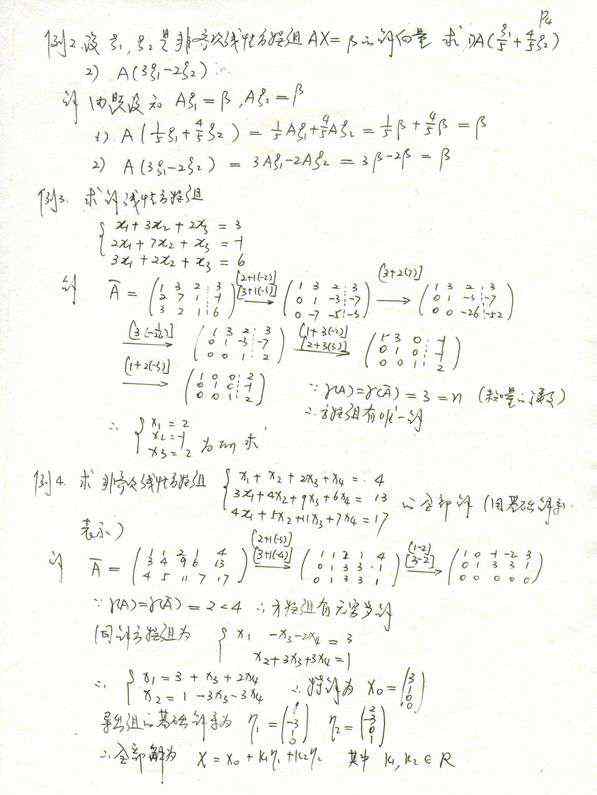 P4
例2. 设 ξ₁, ξ₂ 是非齐次线性方程组 AX = β 的解向量 求 1) A(ξ₁/5 + 4/5 ξ₂)
2) A(3ξ₁-2ξ₂)
解 由题设知 Aξ₁ = β, Aξ₂ = β
1) A(1/5 ξ₁ + 4/5 ξ₂) = 1/5 Aξ₁ + 4/5 Aξ₂ = 1/5 β + 4/5 β = β
2) A(3ξ₁-2ξ₂) = 3Aξ₁-2Aξ₂ = 3β-2β = β
例3. 求解线性方程组
{ x₁+3x₂+2x₃ = 3
2x₁+7x₂+x₃ = -1
3x₁+2x₂+x₃ = 6
解 Ā = ( 1 3 2 3 ; 2 7 1 -1 ; 3 2 1 6 ) [2+1(-2)] [3+1(-3)] → ( 1 3 2 3 ; 0 1 -3 -7 ; 0 -7 -5 -3 ) [3+2(7)] → ( 1 3 2 3 ; 0 1 -3 -7 ; 0 0 -26 -52 )
[3(-1/26)] → ( 1 3 2 3 ; 0 1 -3 -7 ; 0 0 1 2 ) [1+3(-2)] [2+3(3)] → ( 1 3 0 -1 ; 0 1 0 -1 ; 0 0 1 2 )
[1+2(-3)] → ( 1 0 0 2 ; 0 1 0 -1 ; 0 0 1 2 ) ∵ γ(A)=γ(Ā)=3=n (未知量的个数)
∴ 方程组有唯一解
∴ { x₁ = 2
x₂ = -1 为所求
x₃ = 2
例4. 求非齐次线性方程组 { x₁+x₂+2x₃+x₄ = 4
3x₁+4x₂+9x₃+6x₄ = 13 的全部解 (用基础解系
4x₁+5x₂+11x₃+7x₄ = 17
表示)
解 Ā = ( 1 1 2 1 4 ; 3 4 9 6 13 ; 4 5 11 7 17 ) [2+1(-3)] [3+1(-4)] → ( 1 1 2 1 4 ; 0 1 3 3 1 ; 0 1 3 3 1 ) [1-2] [3-2] → ( 1 0 -1 -2 3 ; 0 1 3 3 1 ; 0 0 0 0 0 )
∵ γ(A)=γ(Ā)=2<4 ∴ 方程组有无穷多解
同解方程组为 { x₁ -x₃-2x₄ = 3
x₂+3x₃+3x₄ = 1
∴ { x₁ = 3 + x₃ + 2x₄
x₂ = 1 -3x₃-3x₄ ∴ 特解为 X₀ = ( 3 1 0 0 )
导出组的基础解系为 η₁ = ( 1 -3 1 0 ) η₂ = ( 2 -3 0 1 )
∴ 全部解为 X = X₀ + k₁η₁ + k₂η₂ 其中 k₁, k₂ ∈ R